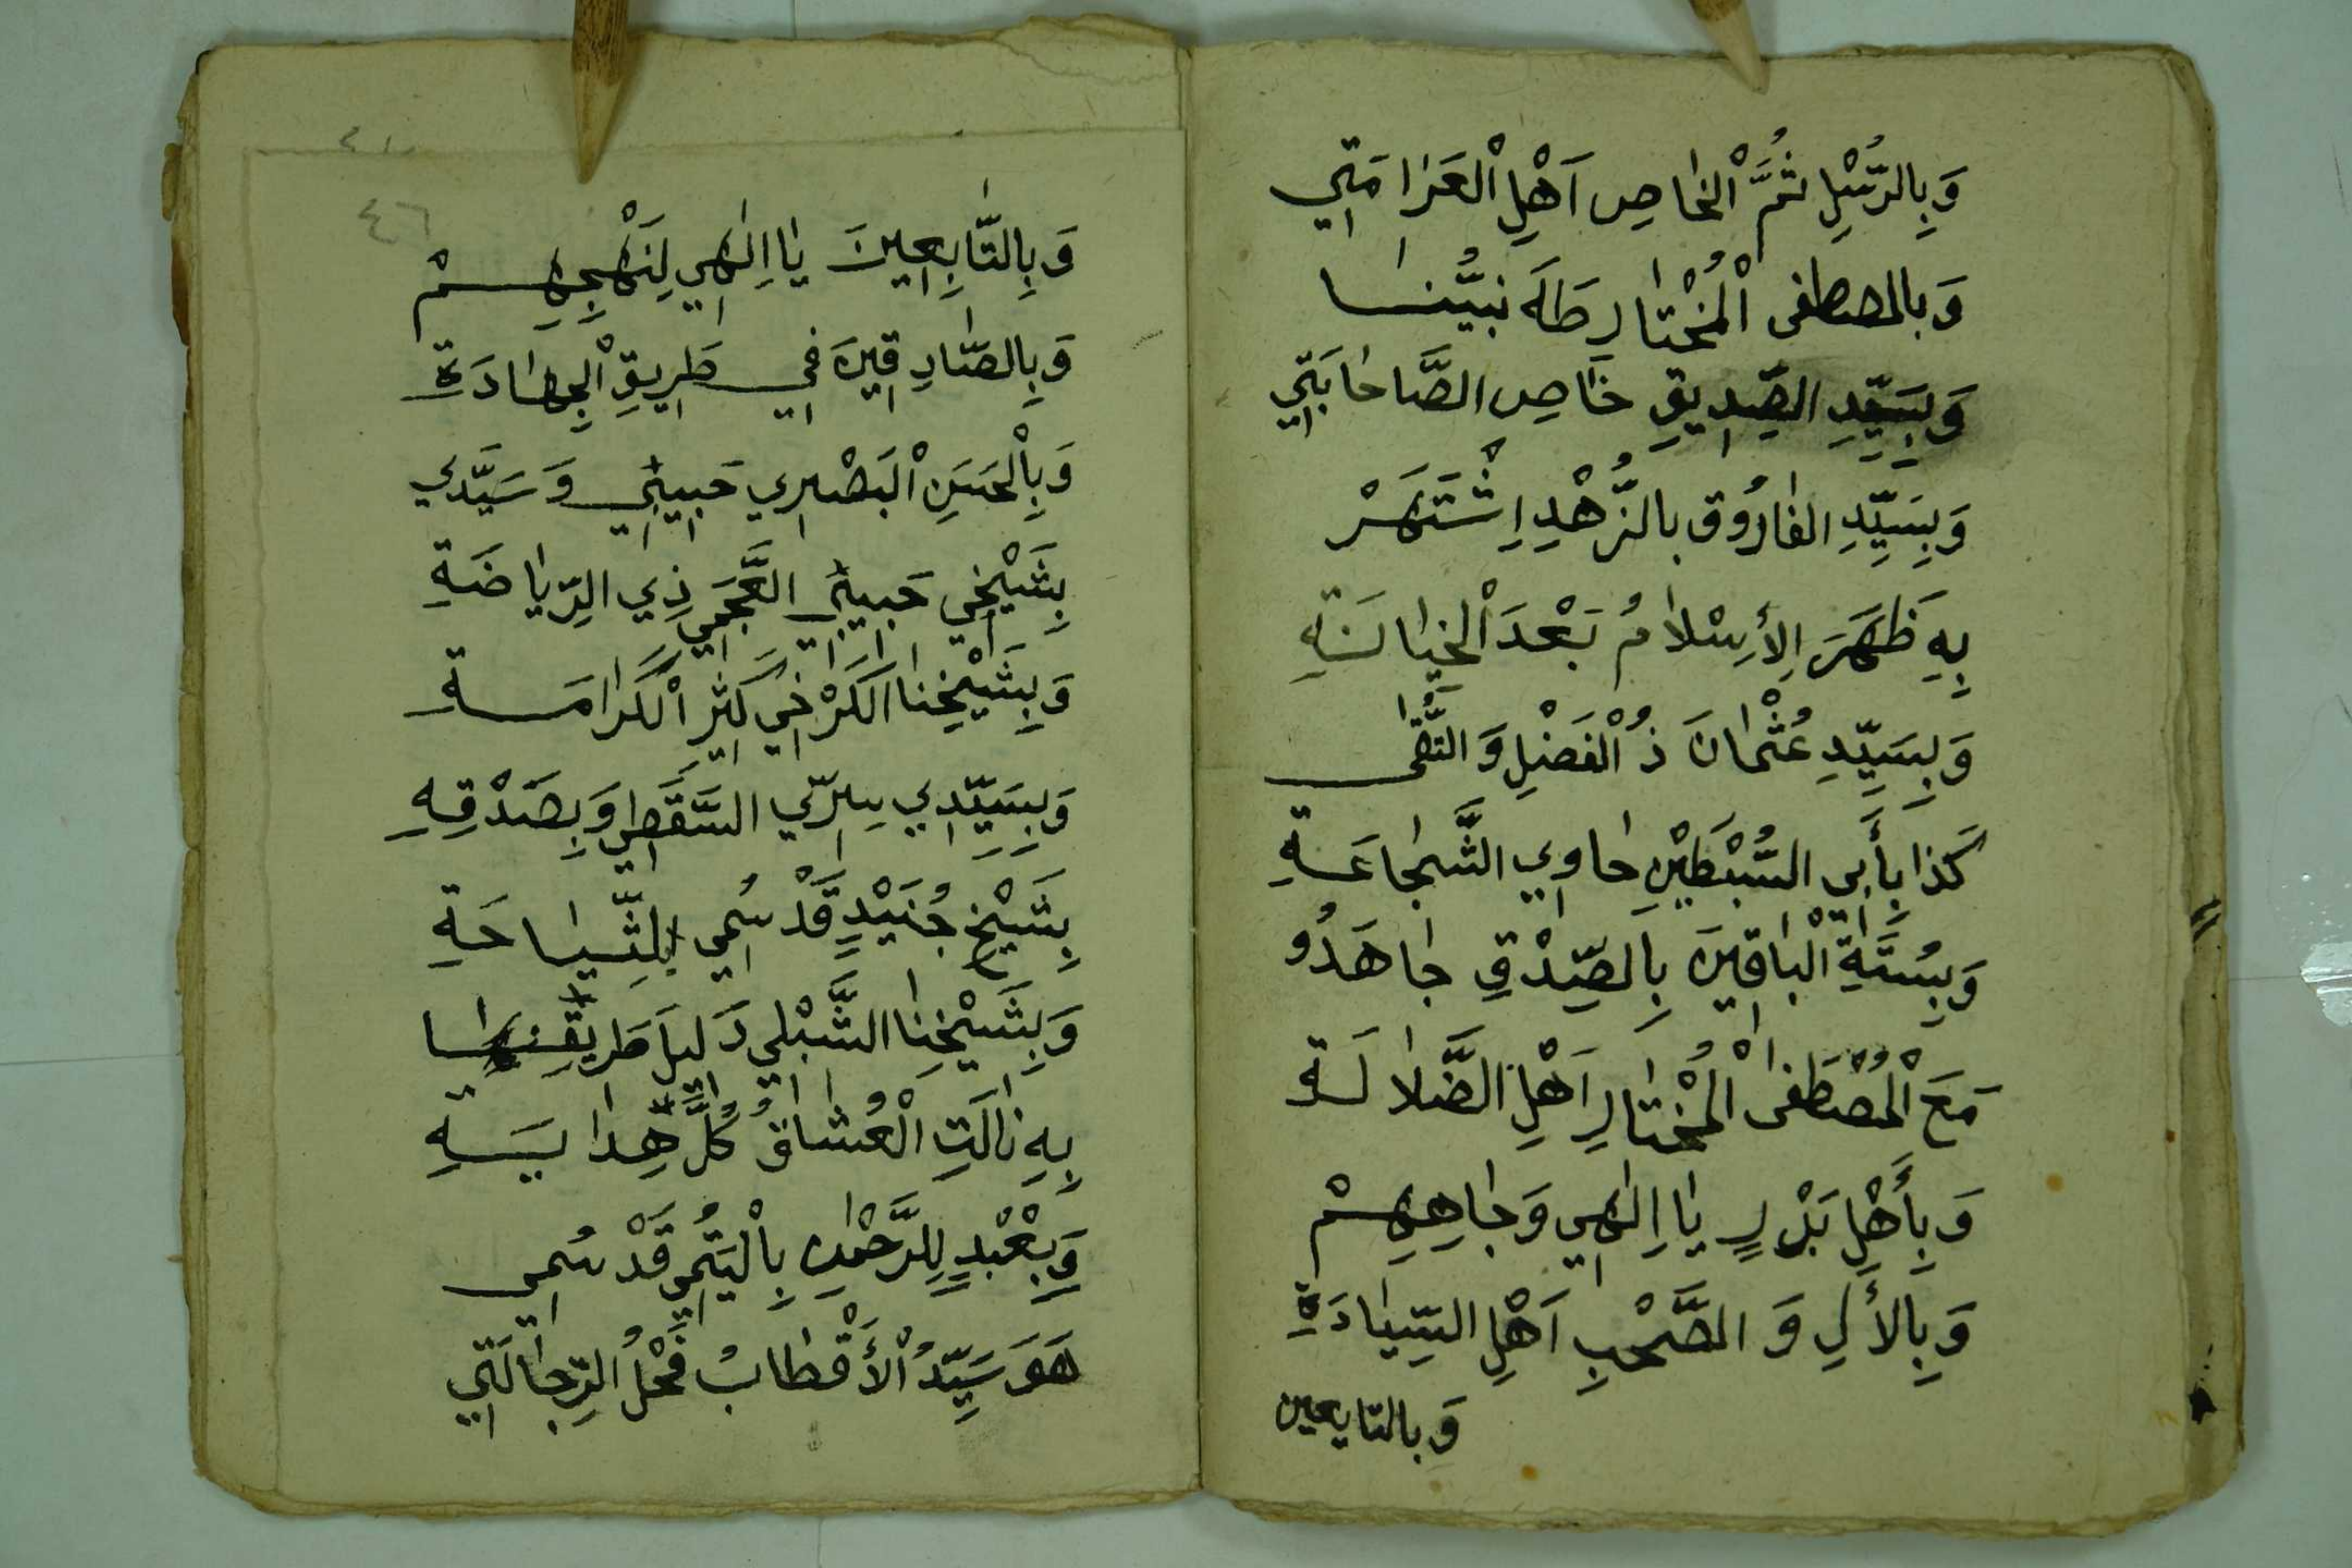 وَبِالرُّسْلِ ثُمَّ الْخَاصِ اَهْلِ الْعَزَامَتِي
وَبِالمصطفى الْمُخْتَارِ طَهَ نبيُّنَا
وَبِسَيِّدِ الصِّدِيقِ خَاصِ الصَّاحَابَتِي
وَبِسَيِّدِ الفَارُوق بالزُّهْدِ اِشْتَهَرْ
بِهِ ظَهَرَ الِأسْلَامُ بَعْدَ الْخِيَانَةِ
وَبِسَيِّدِ عُثْمَانَ ذُ الْفَضْلِ وَ التُّقَى
كَذَا بِأَبِي السُّبْطَيْنِ حَاوِي الشَّجَاعَةِ
وَبِسُتَّةِ الْبَاقِينَ بِالصِّدْقِ جَاهَدُو
مَعَ الْمُصْطَفَى الْمُخْتَارِ اَهْلِ الضَّلَالَةِ
وَبِأَهْلِ بَدْرٍ يَا اِلَهِي وَجَاهِهِمْ
وَبِالأَلِ وَ الصَّحْبِ اَهْلِ السِّيَادَةِ
وَبالتابعين
٤٦
وَبِالتَّابِعِينَ يَا اِلَهِي لِنَهْجِهِمْ
وَبِالصَّادِقِينَ فِي طَرِيقِ الْجِهَادَةِ
وَبِالْحَسَنِ الْبَصْرِي حَبِيبِي وَسَيَّدِي
بِشَيْخِي حَبِيبِي العَّجَمِي ذِي الرِّيَاضَةِ
وَبِشَيْخِنَا الكَرْخِي كَثِيرِ الْكَرَامَةِ
وَبِسَيِّدِي سِرِّي السَّقَطِي وَبِصَدْقِهِ
بِشَيْخِ جُنَيْدٍ قَدْ سُمِي بِلسِّيَاحَةِ
وَبِشَيْخِنَا الشَّبْلِي دَلِيلَ طَرِيقِنَا
بِهِ نَالَتِ الْعُشَاقُ كُلَّ هِدَايَةِ
وَبِعْبْدٍ لِلرَّحْمَنِ بِالْيَتُمِي قَدْ سُمِي
هَوَ سَيِّدُ الْأَقْطَابُ فَحْلُ الرِّجَالَتِي